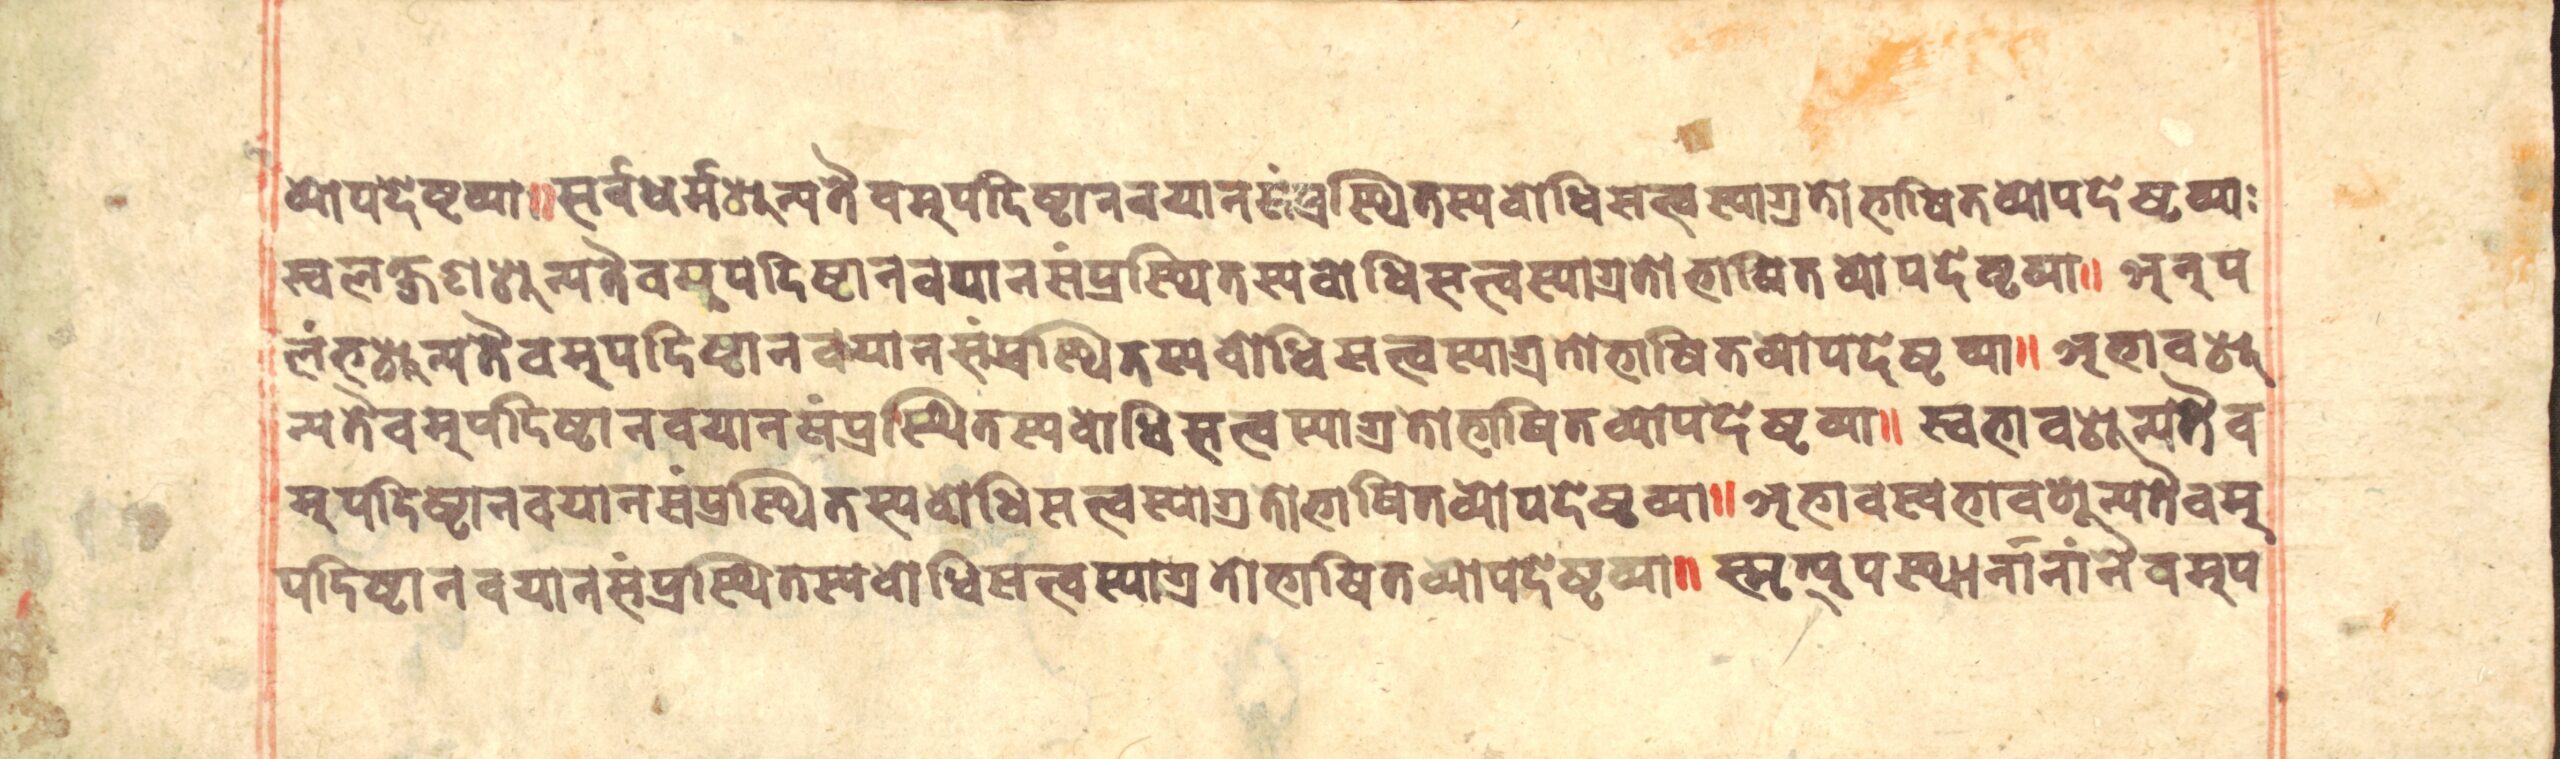 व्योपदेष्टव्या॥सर्वधर्मशून्यतैवमुपदिष्टानवयानसंप्रस्थितस्यबोधिसत्त्वस्याग्रतोभाषितव्योपदेष्टव्याः
स्वलक्षणशून्यतैवमुपदिष्टानवयानसंप्रस्थितस्यबोधिसत्त्वस्याग्रतोभाषितव्योपदेष्टव्या॥ अनुप
लंभशून्यतैवमुपदिष्टानवयानसंप्रस्थितस्यबोधिसत्त्वस्याग्रतोभाषितव्योपदेष्टव्या॥ अभावशू
न्यतैवमुपदिष्टानवयानसंप्रस्थितस्यबोधिसत्त्वस्याग्रतोभाषितव्योपदेष्टव्या॥ स्वभावशून्यतैव
मुपदिष्टानवयानसंप्रस्थितस्यबोधिसत्त्वस्याग्रतोभाषितव्योपदेष्टव्या॥अभावस्वभावशून्यतैवमु
पदिष्टानवयानसंप्रस्थितस्यबोधिसत्त्वस्याग्रतोभाषितव्योपदेष्टव्या॥ स्मृत्युपस्थानानांनैवमुप